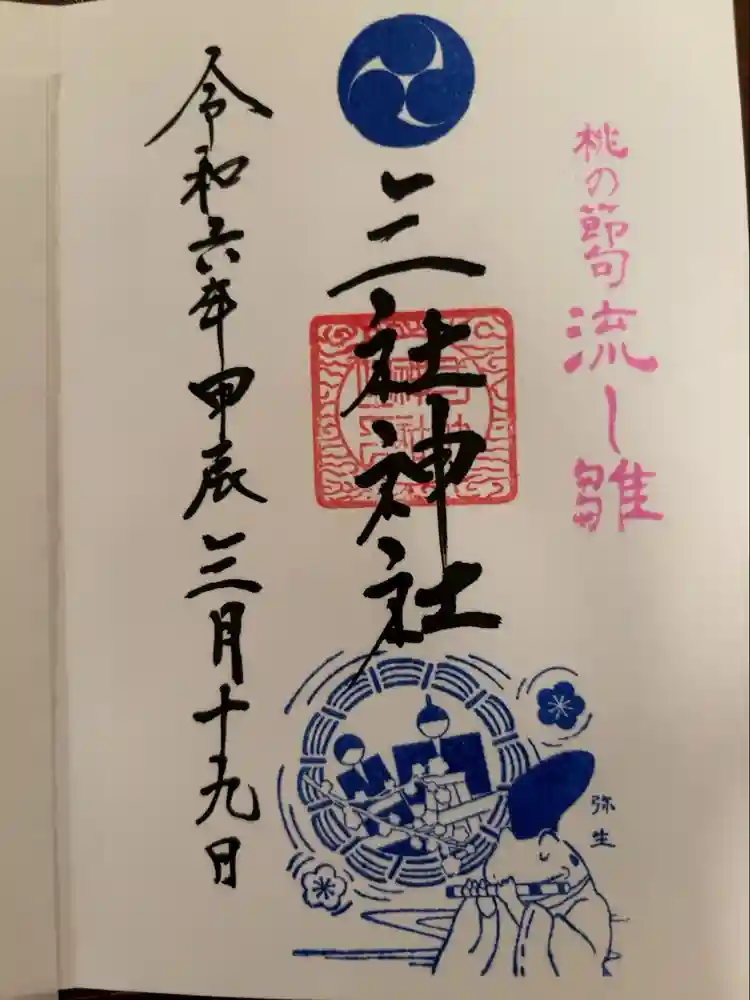 桃の節句 流し雛
三社神社
弥生
令和六年甲辰三月十九日